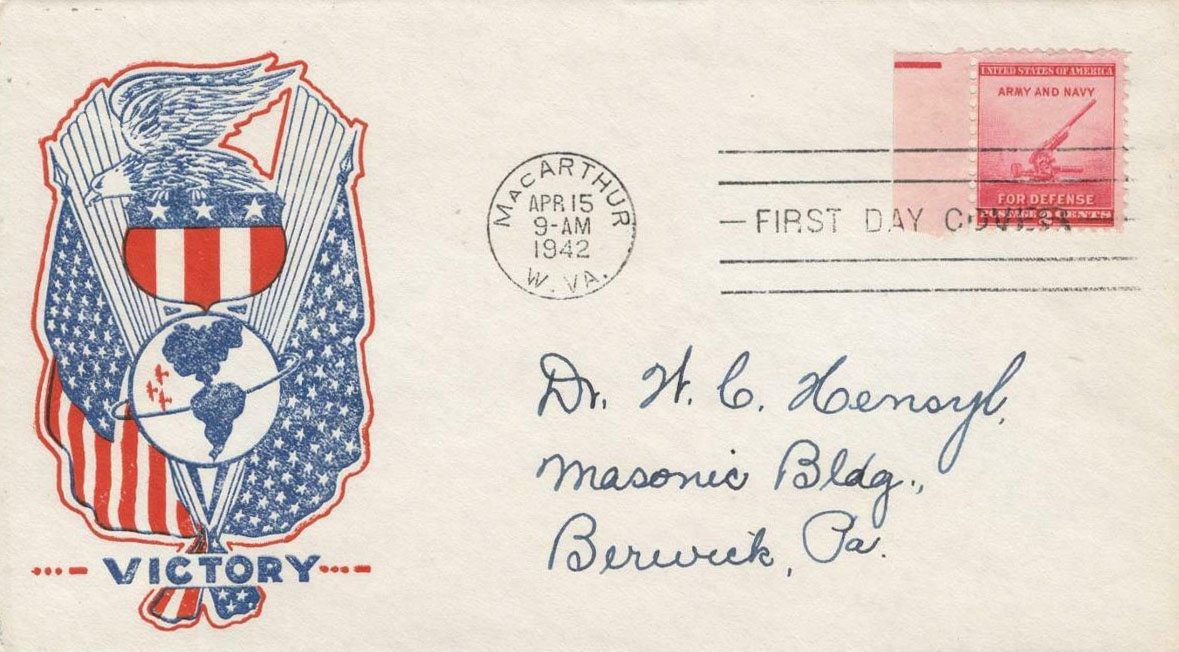 UNITED STATES OF AMERICA
ARMY AND NAVY
FOR DEFENSE
POSTAGE 2 CENTS
MacARTHUR
APR 15
9-AM
1942
W. VA.
FIRST DAY COVER
Dr. W. C. Hensyl,
Masonic Bldg.,
Berwick, Pa.
VICTORY